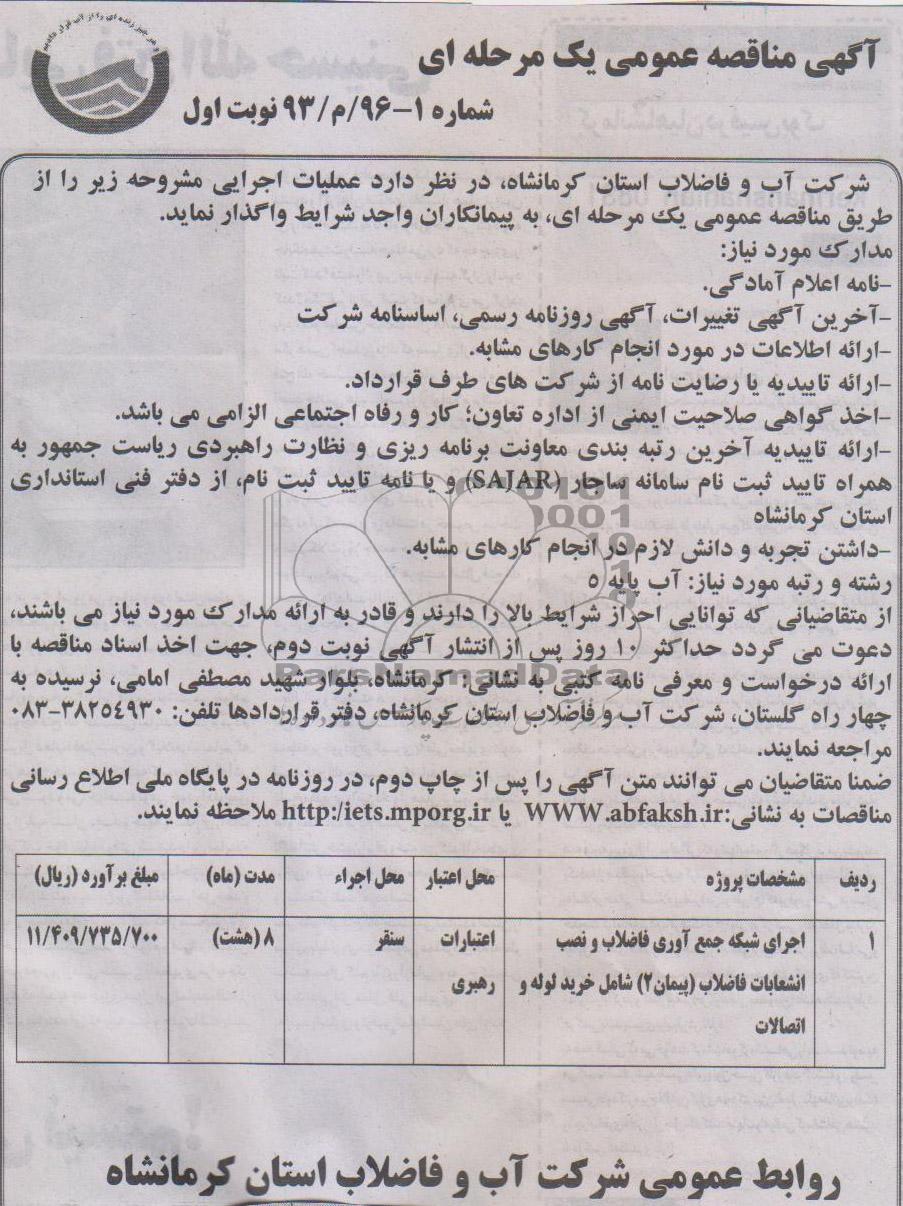 هر چیز زنده ای را از آب قرار دادیم
آگهی مناقصه عمومی یک مرحله ای
شماره ۱-۹۶/م/۹۳ نوبت اول
شرکت آب و فاضلاب استان کرمانشاه، در نظر دارد عملیات اجرایی مشروحه زیر را از
طریق مناقصه عمومی یک مرحله ای، به پیمانکاران واجد شرایط واگذار نماید.
مدارک مورد نیاز:
-نامه اعلام آمادگی.
-آخرین آگهی تغییرات، آگهی روزنامه رسمی، اساسنامه شرکت
-ارائه اطلاعات در مورد انجام کارهای مشابه.
-ارائه تاییدیه یا رضایت نامه از شرکت های طرف قرارداد.
-اخذ گواهی صلاحیت ایمنی از اداره تعاون؛ کار و رفاه اجتماعی الزامی می باشد.
-ارائه تاییدیه آخرین رتبه بندی معاونت برنامه ریزی و نظارت راهبردی ریاست جمهور به
همراه تایید ثبت نام سامانه ساجار (SAJAR) و یا نامه تایید ثبت نام، از دفتر فنی استانداری
استان کرمانشاه
-داشتن تجربه و دانش لازم در انجام کارهای مشابه.
رشته و رتبه مورد نیاز: آب پایه ۵
از متقاضیانی که توانایی احراز شرایط بالا را دارند و قادر به ارائه مدارک مورد نیاز می باشند،
دعوت می گردد حداکثر ۱۰ روز پس از انتشار آگهی نوبت دوم، جهت اخذ اسناد مناقصه با
ارائه درخواست و معرفی نامه کتبی به نشانی: کرمانشاه، بلوار شهید مصطفی امامی، نرسیده به
چهار راه گلستان، شرکت آب و فاضلاب استان کرمانشاه، دفتر قراردادها تلفن: ۳۸۲۵۴۹۳۰-۰۸۳
مراجعه نمایند.
ضمنا متقاضیان می توانند متن آگهی را پس از چاپ دوم، در روزنامه در پایگاه ملی اطلاع رسانی
مناقصات به نشانی:WWW.abfaksh.ir یا http:/iets.mporg.ir ملاحظه نمایند.
ردیف مشخصات پروژه محل اعتبار محل اجراء مدت (ماه) مبلغ برآورد (ریال)
۱ اجرای شبکه جمع آوری فاضلاب و نصب اعتبارات سنقر ۸ (هشت) ۱۱/۴۰۹/۷۳۵/۷۰۰
انشعابات فاضلاب (پیمان۲) شامل خرید لوله و رهبری
اتصالات
روابط عمومی شرکت آب و فاضلاب استان کرمانشاه
ParsNamadData